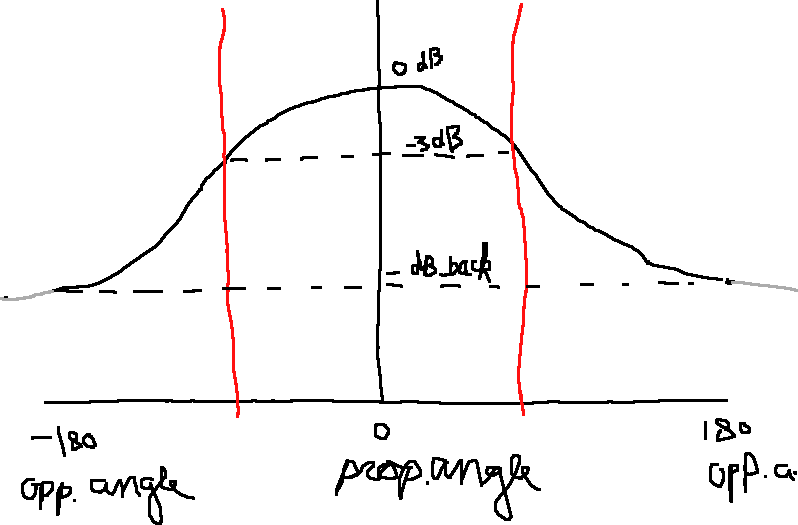 0 dB
-3dB
dB_back
-180 0 180
opp. angle prop.angle opp.a.